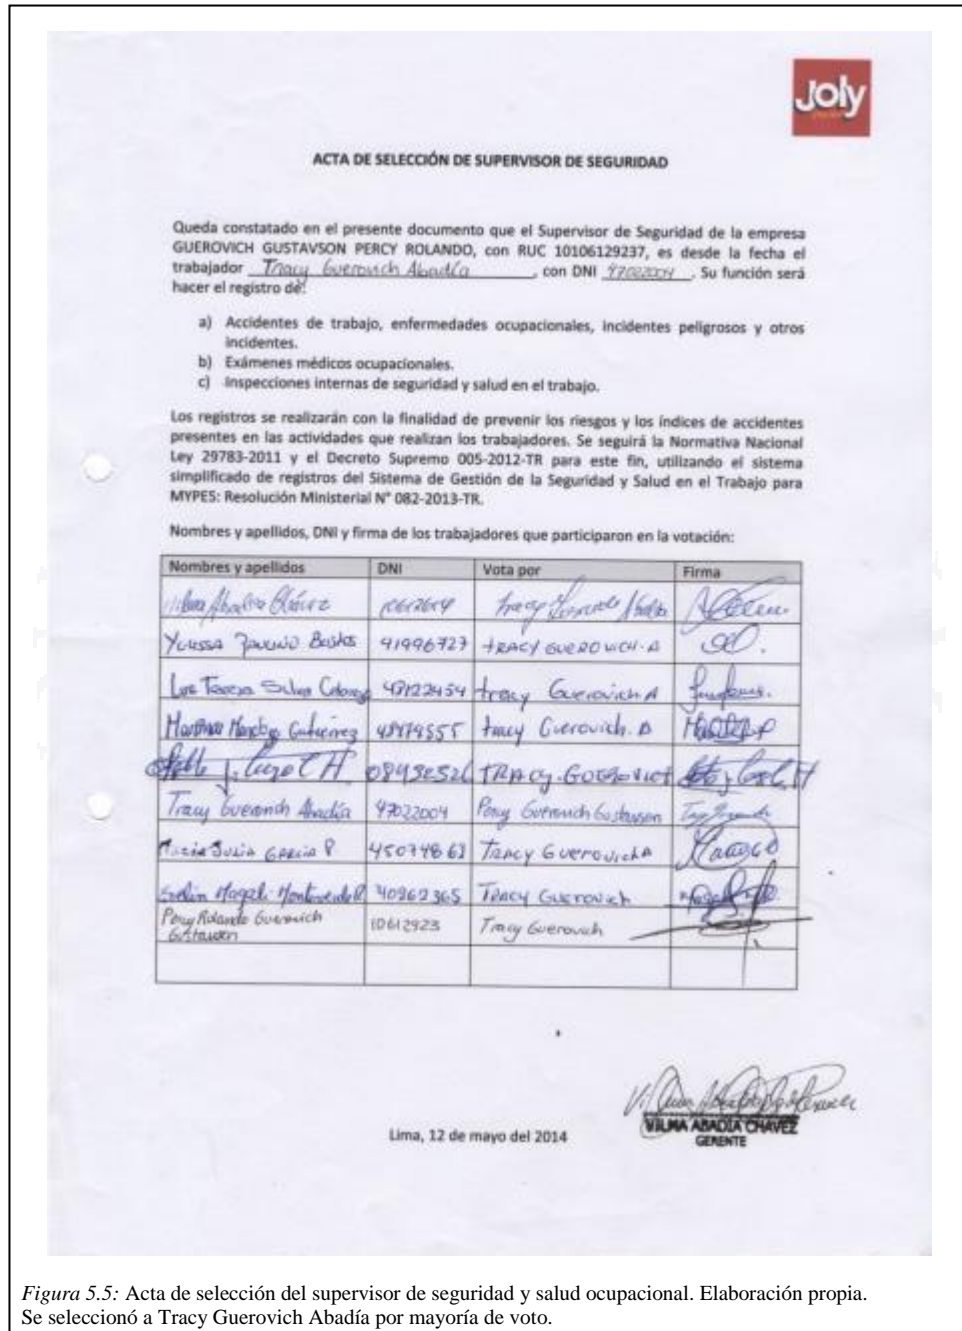 Joly
ACTA DE SELECCIÓN DE SUPERVISOR DE SEGURIDAD
Queda constatado en el presente documento que el Supervisor de Seguridad de la empresa
GUEROVICH GUSTAVSON PERCY ROLANDO, con RUC 10106129237, es desde la fecha el
trabajador Tracy Guerovich Abadía, con DNI 47022004. Su función será
hacer el registro de:
a) Accidentes de trabajo, enfermedades ocupacionales, incidentes peligrosos y otros
incidentes.
b) Exámenes médicos ocupacionales.
c) Inspecciones internas de seguridad y salud en el trabajo.
Los registros se realizarán con la finalidad de prevenir los riesgos y los índices de accidentes
presentes en las actividades que realizan los trabajadores. Se seguirá la Normativa Nacional
Ley 29783-2011 y el Decreto Supremo 005-2012-TR para este fin, utilizando el sistema
simplificado de registros del Sistema de Gestión de la Seguridad y Salud en el Trabajo para
MYPES: Resolución Ministerial N° 082-2013-TR.
Nombres y apellidos, DNI y firma de los trabajadores que participaron en la votación:
Nombres y apellidos DNI Vota por Firma
Vilma Abadía Chávez Tracy
41996727 TRACY GUEROVICH A
Silva tracy Guerovich A
Gutiérrez tracy Guerovich A
TRACY
Tracy Guerovich Abadía 47022004 Percy Guerovich Gustavson
Julia García P. TRACY Guerovich A
Magali 40962365 TRACY Guerovich
Percy Rolando Guerovich
Gustavson 10612923 Tracy Guerovich
Lima, 12 de mayo del 2014
VILMA ABADIA CHAVEZ
GERENTE
Figura 5.5: Acta de selección del supervisor de seguridad y salud ocupacional. Elaboración propia.
Se seleccionó a Tracy Guerovich Abadía por mayoría de voto.